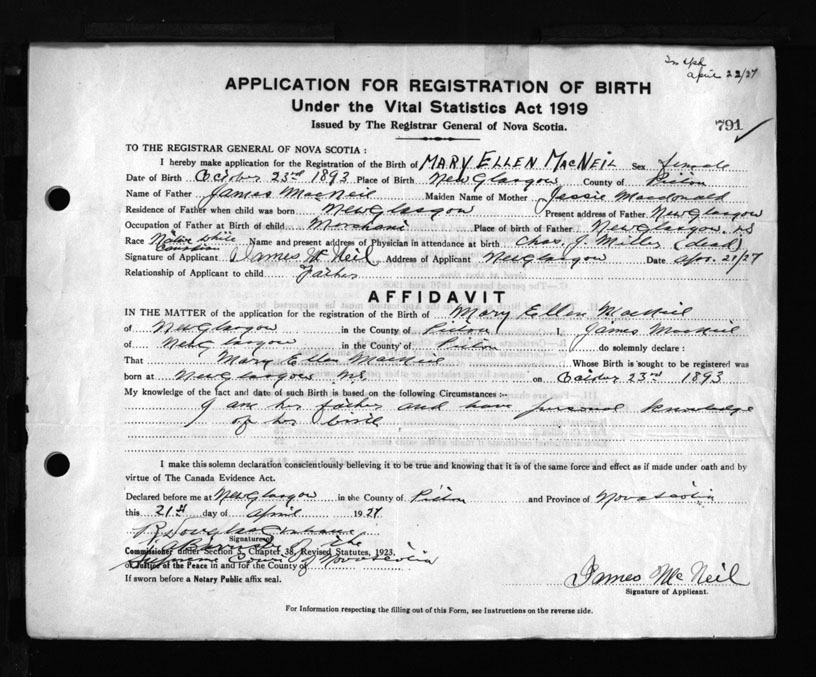 april 22/27
APPLICATION FOR REGISTRATION OF BIRTH
Under the Vital Statistics Act 1919
Issued by The Registrar General of Nova Scotia.
791
TO THE REGISTRAR GENERAL OF NOVA SCOTIA :
I hereby make application for the Registration of the Birth of MARY ELLEN MACNEIL Sex female
Date of Birth October 23rd 1893 Place of Birth New Glasgow County of Pictou
Name of Father James MacNeil Maiden Name of Mother Jessie Macdonald
Residence of Father when child was born New Glasgow Present address of Father New Glasgow
Occupation of Father at Birth of child Merchant Place of birth of Father New Glasgow NS
Race Native White Name and present address of Physician in attendance at birth Chas. J. Miller (dead)
Signature of Applicant James McNeil Address of Applicant New Glasgow Date Apr. 21/27
Relationship of Applicant to child Father
AFFIDAVIT
IN THE MATTER of the application for the registration of the Birth of Mary Ellen MacNeil
of New Glasgow in the County of Pictou I, James MacNeil
of New Glasgow in the County of Pictou do solemnly declare :
That Mary Ellen MacNeil Whose Birth is sought to be registered was
born at New Glasgow NS on October 23rd 1893
My knowledge of the fact and date of such Birth is based on the following Circumstances :-
I am her father and have personal knowledge
of her birth
I make this solemn declaration conscientiously believing it to be true and knowing that it is of the same force and effect as if made under oath and by
virtue of The Canada Evidence Act.
Declared before me at New Glasgow in the County of Pictou and Province of Nova Scotia
this 21st day of April 1927
Signature of
A Barrister of the
Commissioner under Section 3, Chapter 38, Revised Statutes, 1923.
Supreme Court of Nova Scotia
or Justice of the Peace in and for the County of
If sworn before a Notary Public affix seal.
James McNeil
Signature of Applicant.
For Information respecting the filling out of this Form, see Instructions on the reverse side.